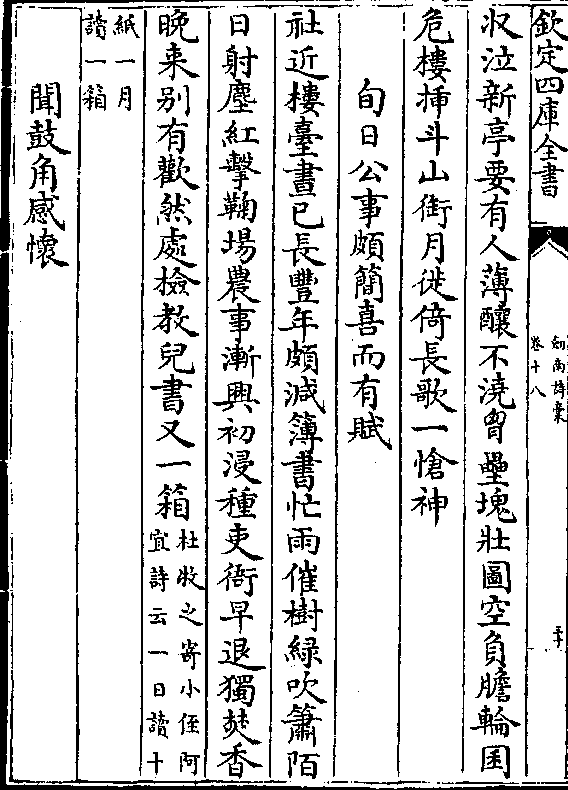 欽定四庫全書
劍南詩稾
卷十八
㳙泣新亭要有人薄釀不澆胷壘塊壯圖空負膽輪囷
危樓揷斗山銜月徙倚長歌一愴神
旬日公事頗簡喜而有賦
社近樓臺晝已長豐年頗減簿書忙雨催樹綠吹簫陌
日射塵紅擊鞠場農事漸興初浸種吏衙早退獨焚香
晚來别有歡然處檢敎兒書又一箱
杜牧之寄小侄阿
宜詩云一日讀十
紙一月
讀一箱
聞鼓角感懷